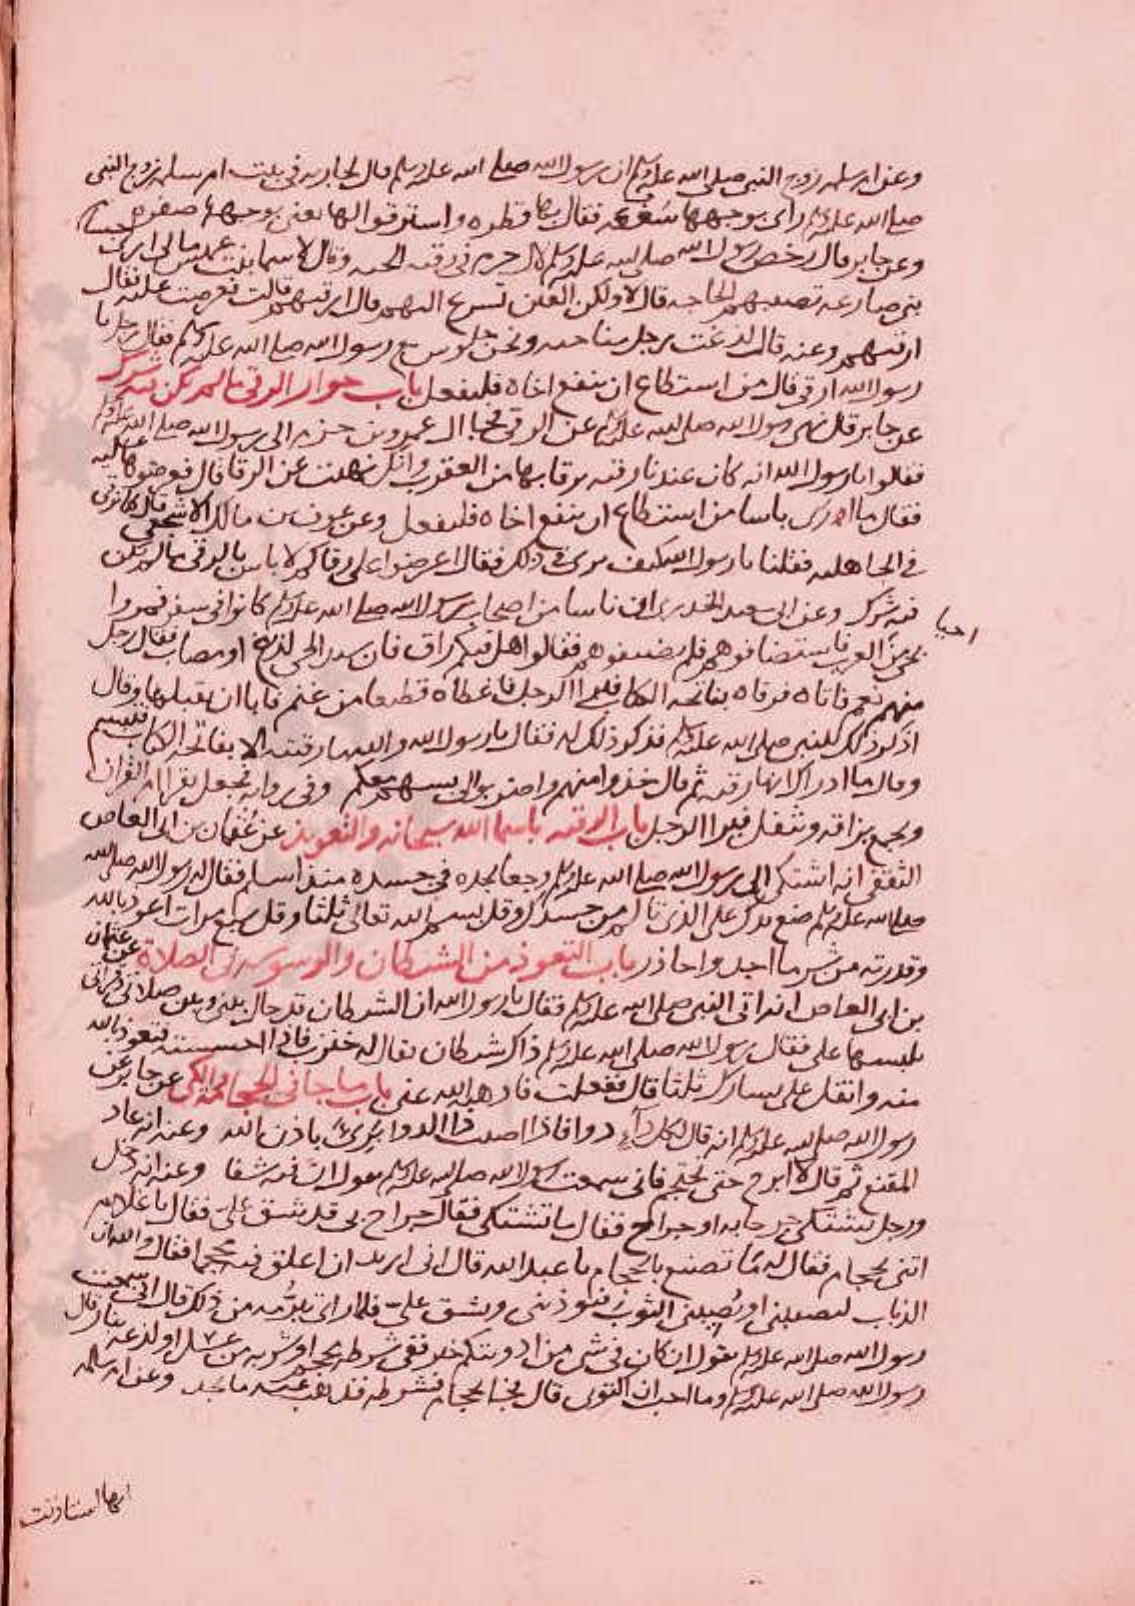 وعن ام سلمه زوج النبي صلى الله عليه وسلم ان رسول الله صلى الله عليه وسلم قال لجاريه في بيت ام سلمه زوج النبي
صلى الله عليه وسلم راى بوجهها سفعه فقال بها نظره واسترقوا لها يعني بوجهها صفره
وعن جابر قال رخص رسول الله صلى الله عليه وسلم لال حزم في رقيه الحيه وقال لاسما بنت عميس مالي ارى اجسام
بني ضارعه تصيبهم الحاجه قال لا ولكن العين تسرع اليهم قال ارقيهم قالت فعرضت عليه فقال
ارقيهم وعنه قال لدغت رجل منا حيه ونحن جلوس مع رسول الله صلى الله عليه وسلم فقال رجل يا
رسول الله ارقي قال من استطاع ان ينفع اخاه فليفعل باب جواز الرقي ما لم يكن فيه شرك
عن جابر قال نهى رسول الله صلى الله عليه وسلم عن الرقي فجا ال عمرو بن حزم الى رسول الله صلى الله عليه وسلم
فقالوا يا رسول الله انه كان عندنا رقيه نرقا بها من العقرب وانك نهيت عن الرقا قال فعرضوها عليه
فقال ما ارى باسا من استطاع ان ينفع اخاه فليفعل وعن عوف بن مالك الاشجعي قال كنا نرقي
في الجاهليه فقلنا يا رسول الله كيف ترى في ذلك فقال اعرضوا علي رقاكم لا باس بالرقي ما لم يكن
فيه شرك وعن ابي سعيد الخدري ان ناسا من اصحاب رسول الله صلى الله عليه وسلم كانوا في سفر فمروا
احيا
بحي من العرب فاستضافوهم فلم يضيفوهم فقالوا هل فيكم راق فان سيد الحي لديغ او مصاب فقال رجل
منهم نعم فاتاه فرقاه بفاتحه الكتاب فبرا الرجل فاعطاه قطيعا من غنم فابا ان يقبلها وقال
اذكر ذلك للنبي صلى الله عليه وسلم فذكر ذلك له فقال يا رسول الله والله ما رقيته الا بفاتحه الكتاب فتبسم
وقال ما ادراك انها رقيه ثم قال خذوا منهم واضربوا لي بسهم معكم وفي روايه فجعل يقرا ام القران
ويجمع بزاقه ويتفل فبرا الرجل باب الرقيه باسما الله سبحانه والتعويذ عن عثمان بن ابي العاص
الثقفي انه اشتكى الى رسول الله صلى الله عليه وسلم وجعا يجده في جسده منذ اسلم فقال له رسول الله صلى الله
صلى الله عليه وسلم ضع يدك على الذي تالم من جسدك وقل بسم الله تعالى ثلثا وقل سبع مرات اعوذ بالله
وقدرته من شر ما اجد واحاذر باب التعوذ من الشيطان والوسوسه في الصلاة عن عثمان
بن ابي العاص انه اتى النبي صلى الله عليه وسلم فقال يا رسول الله ان الشيطان قد حال بيني وبين صلاتي وقراتي
يلبسها علي فقال رسول الله صلى الله عليه وسلم ذاك شيطان يقال له خنزب فاذا احسسته فتعوذ بالله
منه واتفل على يسارك ثلثا قال ففعلت فاذهب الله عني باب ما جا في الحجامة والكي عن جابر عن
رسول الله صلى الله عليه وسلم انه قال لكل داء دوا فاذا اصيب دا الدوا برئ باذن الله وعنه انه عاد
المقنع ثم قال لا ابرح حتى تحتجم فاني سمعت رسول الله صلى الله عليه وسلم يقول ان فيه شفا وعنه انه دخل
ورجل يشتكي خراجا به او جراح فقال ما تشتكي فقال خراج بي قد شق علي فقال يا غلام
ائتني بحجام فقال له ما تصنع بالحجام يا عبد الله قال اني اريد ان اعلق فيه محجما فقال والله ان
الذباب ليصيبني او يصيبني الثوب فيوذيني ويشق علي فلما راى تبرمه من ذلك قال اني سمعت
رسول الله صلى الله عليه وسلم يقول ان كان في شي من ادويتكم خير ففي شرطه محجم او شربه من عسل او لذعه بنار قال
رسول الله صلى الله عليه وسلم وما احب ان اكتوي قال فجا بحجام فشرطه فذهب عنه ما يجد وعن ام سلمه
انها استاذنت